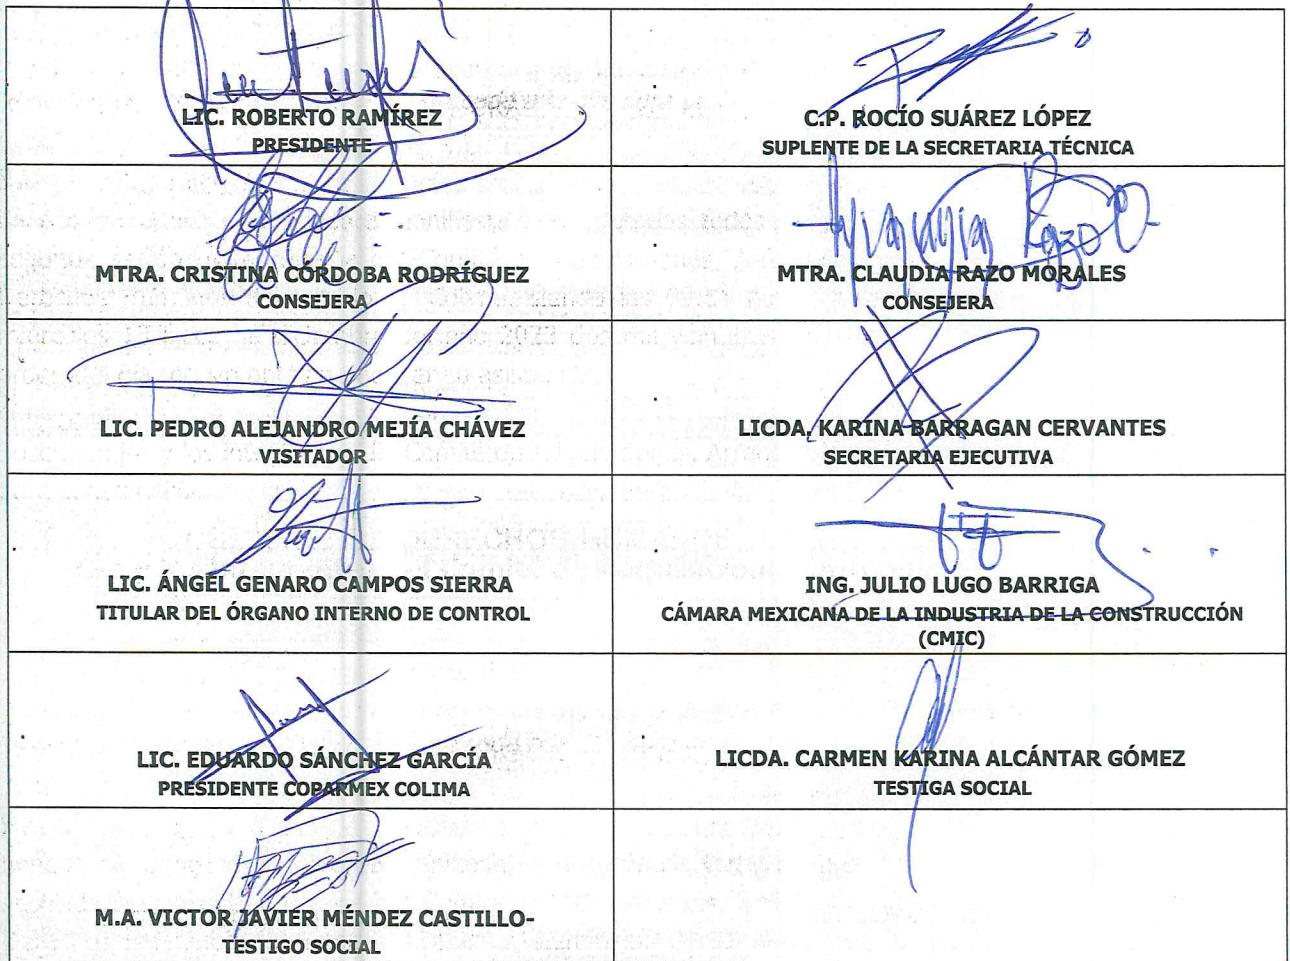 LIC. ROBERTO RAMÍREZ
PRESIDENTE
C.P. ROCÍO SUÁREZ LÓPEZ
SUPLENTE DE LA SECRETARIA TÉCNICA
MTRA. CRISTINA CÓRDOBA RODRÍGUEZ
CONSEJERA
MTRA. CLAUDIA RAZO MORALES
CONSEJERA
LIC. PEDRO ALEJANDRO MEJÍA CHÁVEZ
VISITADOR
LICDA. KARINA BARRAGAN CERVANTES
SECRETARIA EJECUTIVA
LIC. ÁNGEL GENARO CAMPOS SIERRA
TITULAR DEL ÓRGANO INTERNO DE CONTROL
ING. JULIO LUGO BARRIGA
CÁMARA MEXICANA DE LA INDUSTRIA DE LA CONSTRUCCIÓN
(CMIC)
LIC. EDUARDO SÁNCHEZ GARCÍA
PRESIDENTE COPARMEX COLIMA
LICDA. CARMEN KARINA ALCÁNTAR GÓMEZ
TESTIGA SOCIAL
M.A. VICTOR JAVIER MÉNDEZ CASTILLO-
TESTIGO SOCIAL